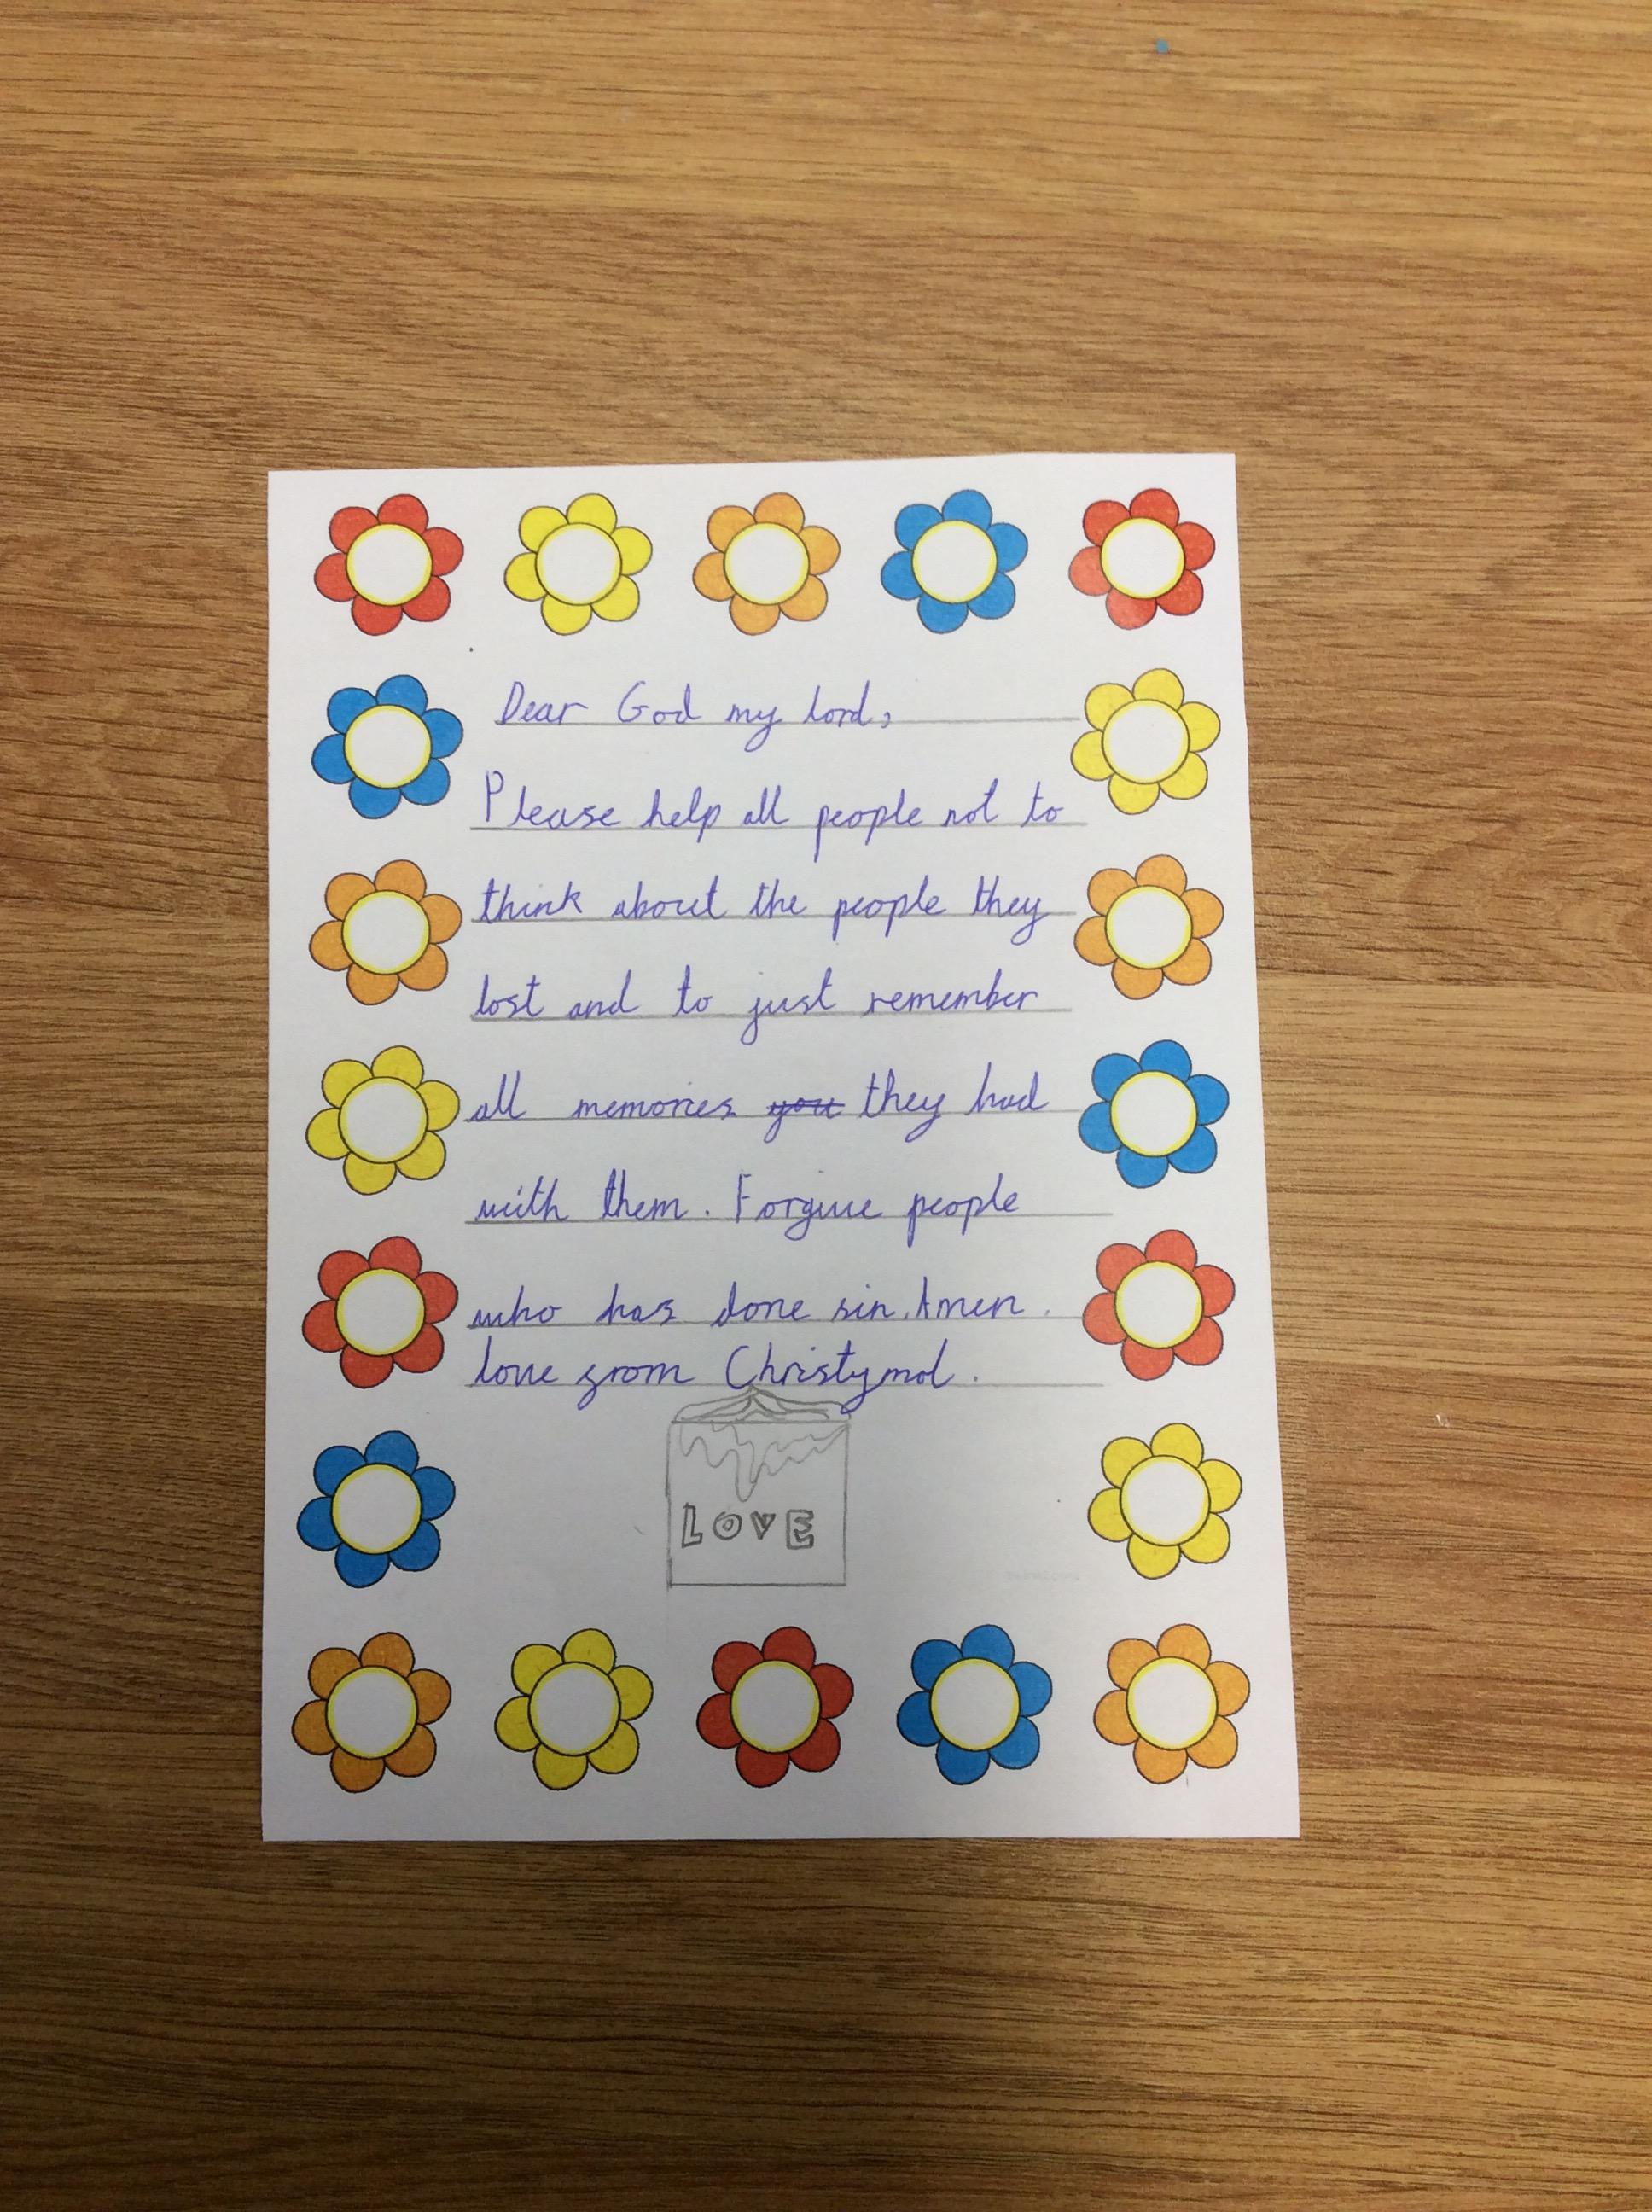 Dear God my lord,
Please help all people not to
think about the people they
lost and to just remember
all memories you they had
with them. Forgive people
who has done sin. Amen.
love from Christymol.
LOVE